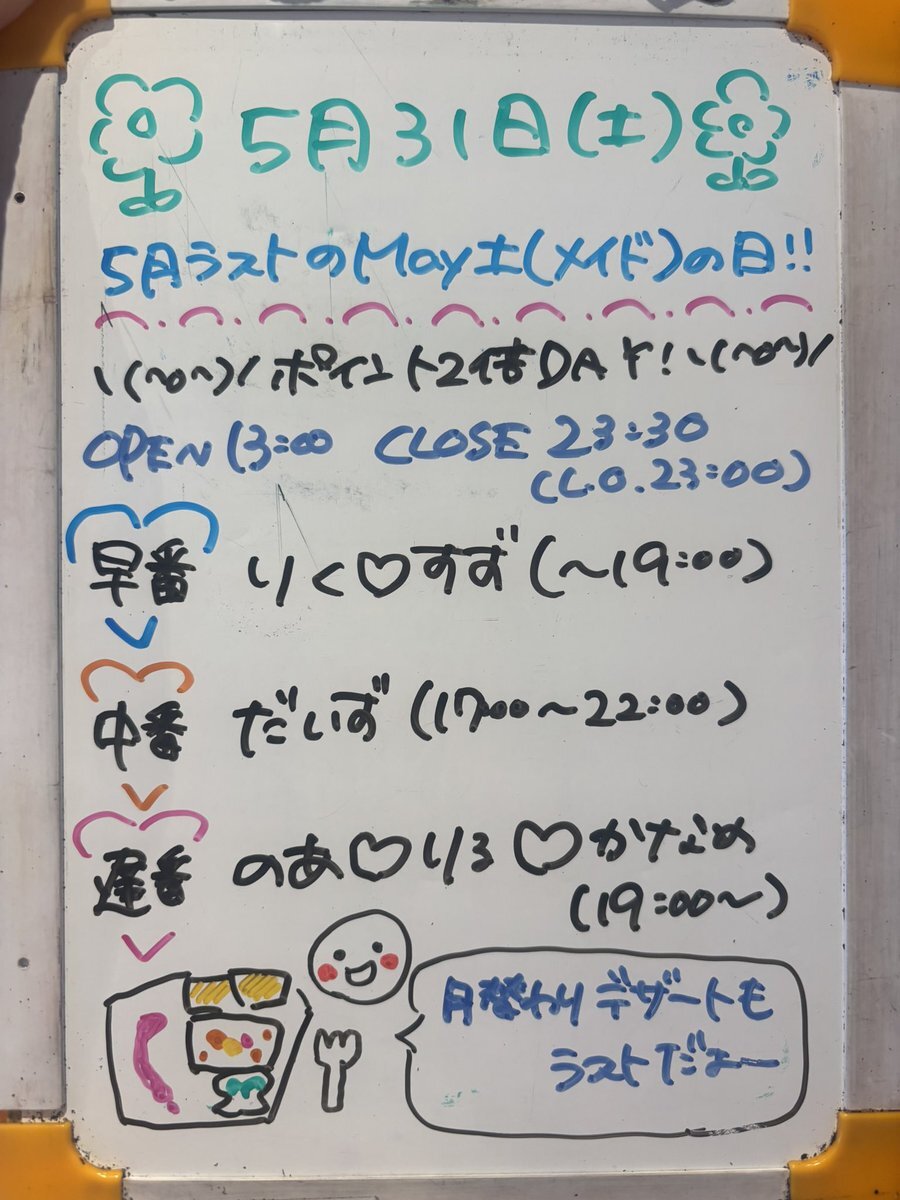 5月31日(土)
5月ラストのMay土(メイド)の日!!
\(~o~)/ポイント2倍DAY!\(~o~)/
OPEN 13:00 CLOSE 23:30
(L.O.23:00)
早番 りく♡すず(~19:00)
中番 だいず(17:00~22:00)
遅番 のあ♡りる♡かなめ
(19:00~)
月替わりデザートも
ラストだよー